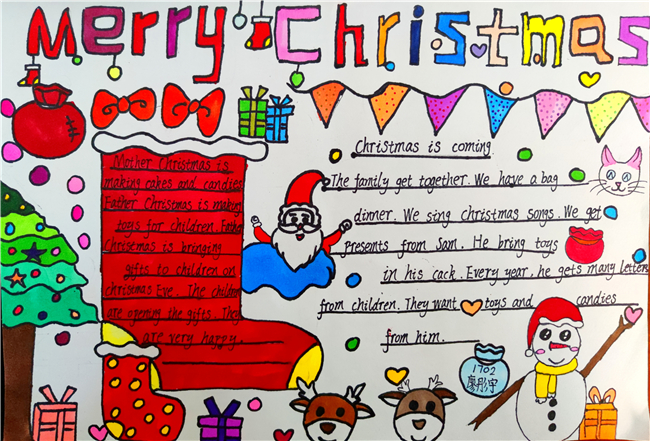 Merry Christmas
Mother Christmas is
making cakes and candies
Father Christmas is making
toys for children. Father
Christmas is bringing
gifts to children on
christmas Eve. The children
are opening the gifts. They
are very happy.
Christmas is coming
The family get together. We have a bag
dinner. We sing christmas songs. We get
presents from Sam. He bring toys
in his cack. Every year, he gets many letters
from children. They want toys and candies
from him.
1702